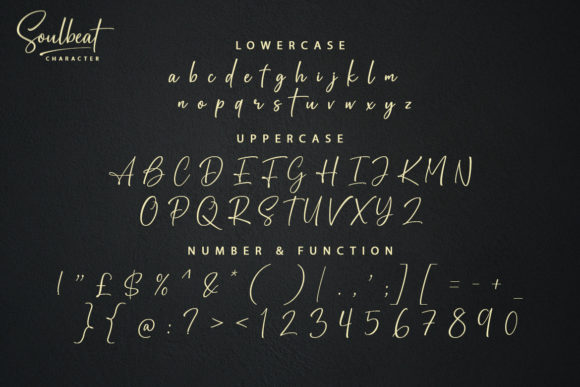 Soulbeat
CHARACTER
LOWERCASE
a b c d e f g h i j k l m
n o p q r s t u v w x y z
UPPERCASE
A B C D E F G H I J K L M N
O P Q R S T U V X Y Z
NUMBER & FUNCTION
! " £ $ % ^ & * ( ) | . , ' ; ] [ = - + _
} { @ : ? > < 1 2 3 4 5 6 7 8 9 0